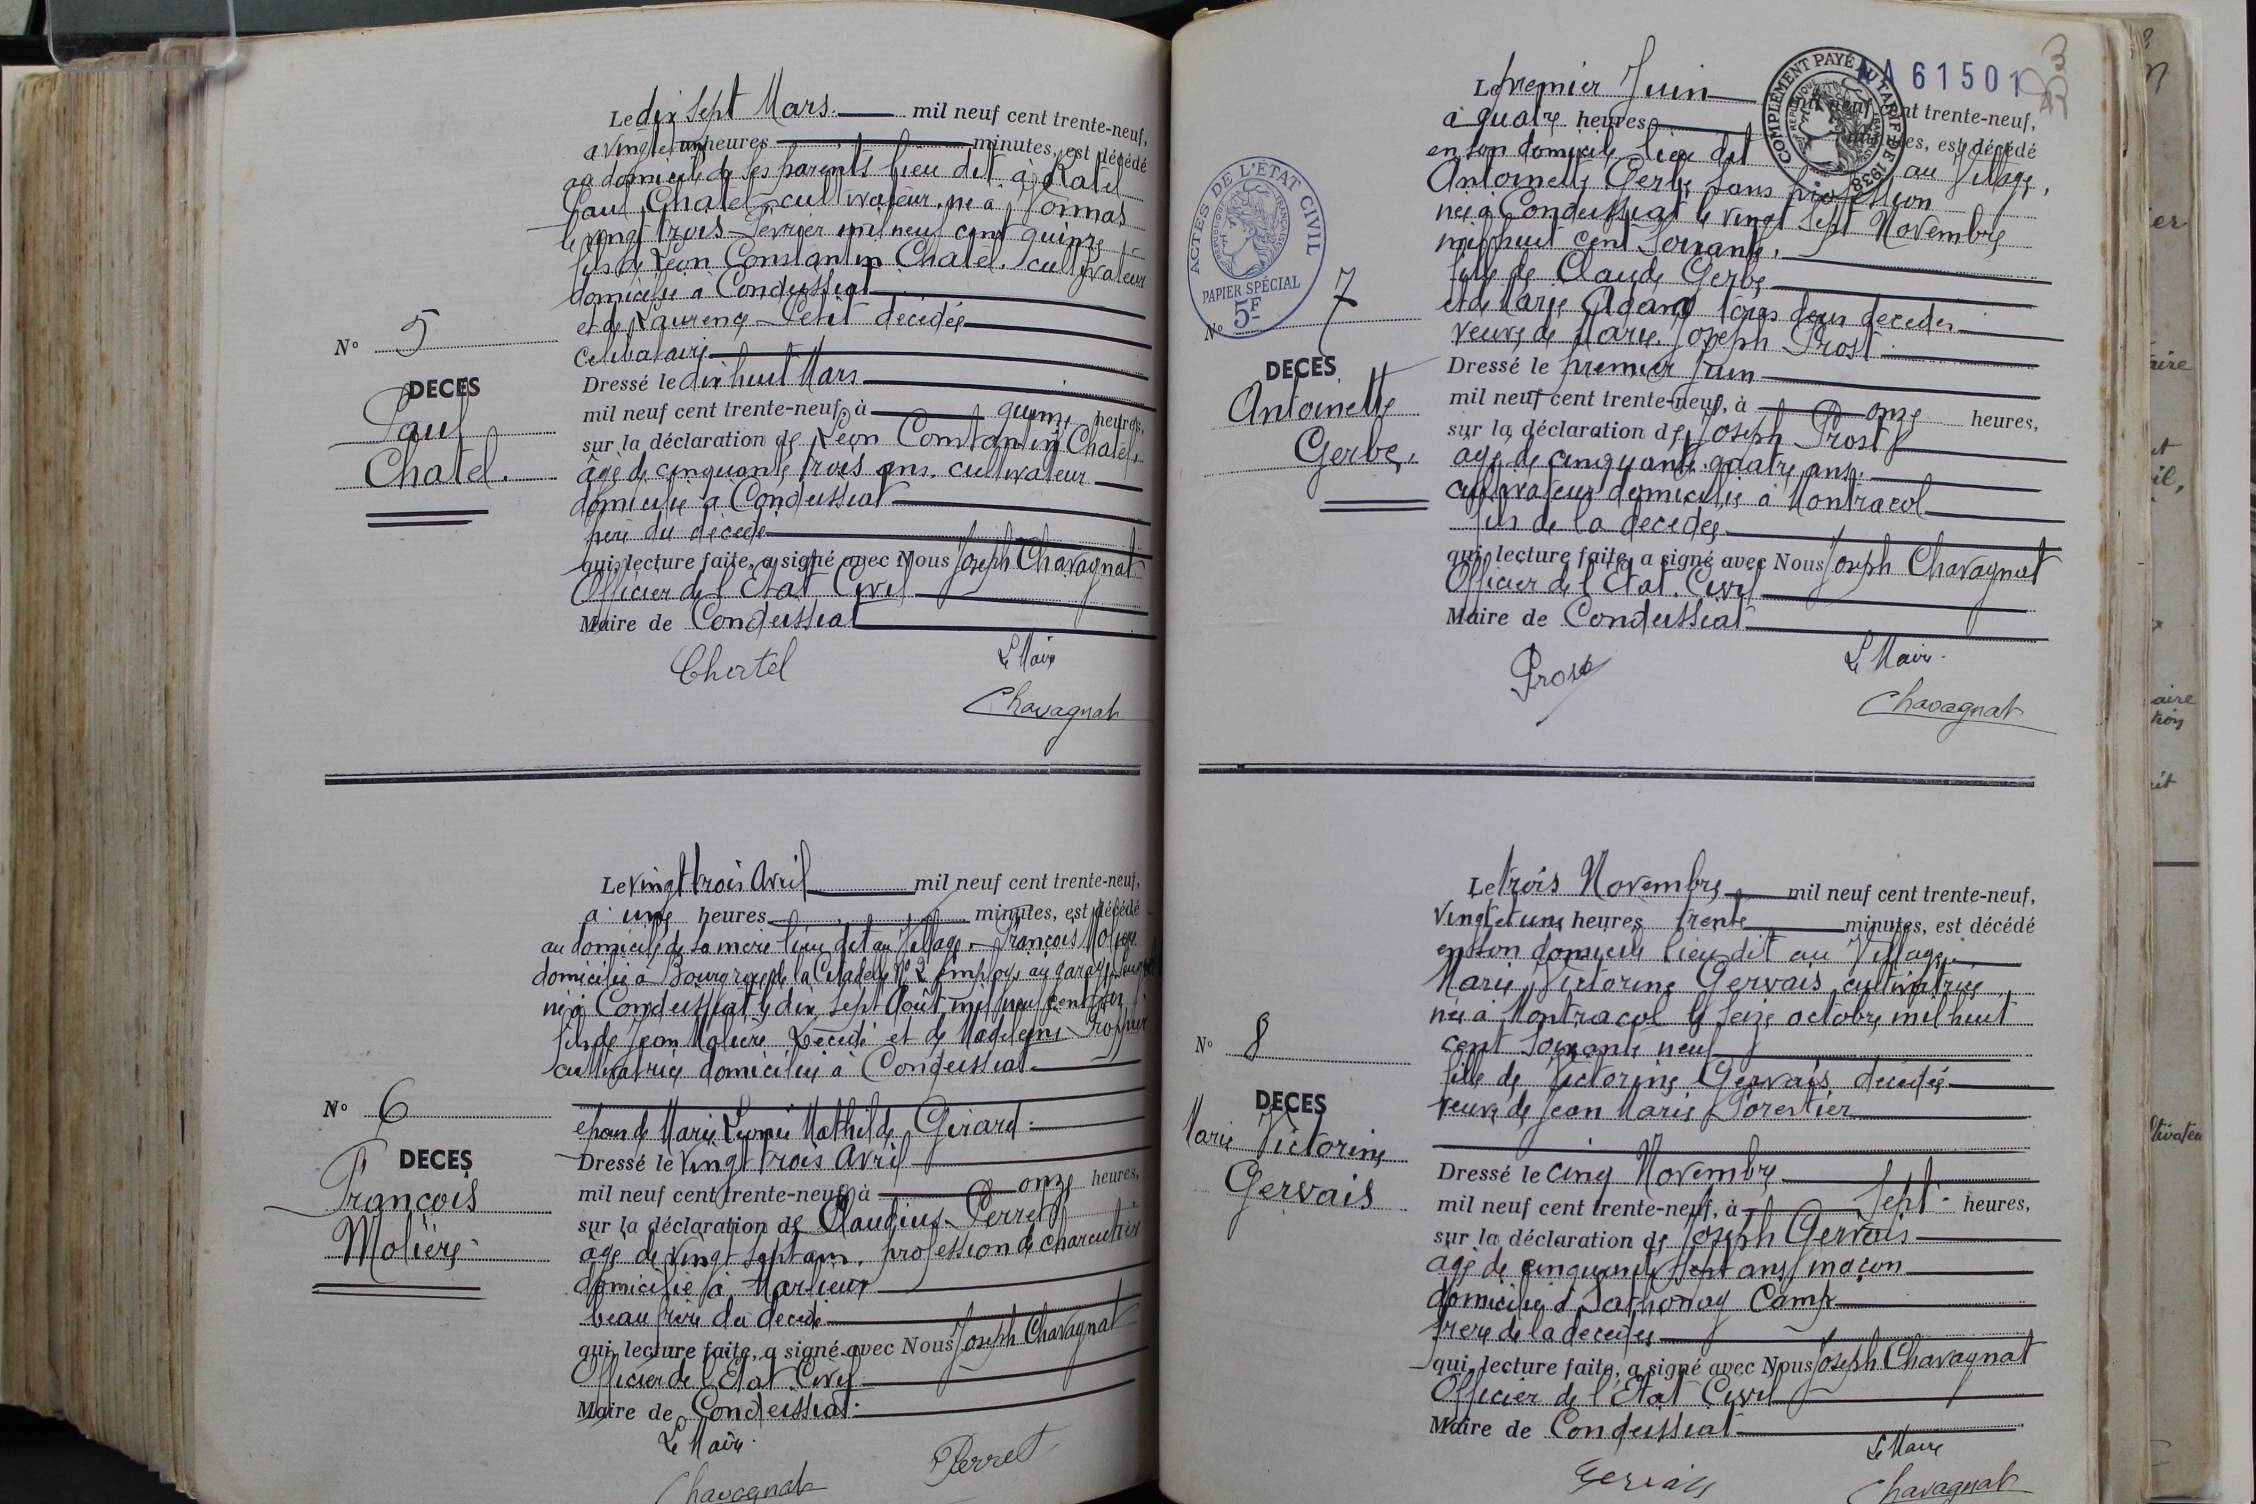 Le dix sept Mars. mil neuf cent trente-neuf,
à vingt et un heures minutes, est décédé
au domicile de ses parents lieu dit à Ratel
Paul Chatel cultivateur né à Vonnas
le vingt trois Février mil neuf cent quinze
fils de Léon Constantin Chatel. cultivateur
domicilié à Condeissiat
et de Laurence Petit décédée
célibataire
Nº 5
DECES
Paul
Chatel.
Dressé le dix huit Mars
mil neuf cent trente-neuf, à quinze heures,
sur la déclaration de Léon Constantin Chatel,
âgé de cinquante trois ans. cultivateur
domicilié à Condeissiat
père du décédé
qui, lecture faite, a signé avec Nous Joseph Chavagnat
Officier de l'Etat Civil
Maire de Condeissiat
Chatel
Le Maire
Chavagnat
Le vingt trois Avril mil neuf cent trente-neuf,
à une heures minutes, est décédé
au domicile de sa mère lieu dit au Village. François Molière
domicilié à Bourg rue de la Citadelle Nº 2 employé au garage
né à Condeissiat le dix sept Août mil neuf cent
fils de Jean Molière Décédé et de Madeleine
cultivatrice domiciliée à Condeissiat.
époux de Marie Léonie Mathilde Girard.
Nº 6
DECES
François
Molière
Dressé le vingt trois Avril
mil neuf cent trente-neuf, à onze heures,
sur la déclaration de Claudius Perret
âgé de vingt sept ans. profession de charcutier
domicilié à Marlieux
beau frère du décédé
qui, lecture faite, a signé avec Nous Joseph Chavagnat
Officier de l'Etat Civil
Maire de Condeissiat.
Le Maire.
Chavagnat
Perret
AA 61501
COMPLÉMENT PAYÉ AU TARIF DE 1938
Le premier Juin mil neuf cent trente-neuf,
à quatre heures minutes, est décédé
en son domicile lieu dit au Village,
Antoinette Gerbe sans profession
née à Condeissiat le vingt sept Novembre
mil huit cent soixante.
fille de Claude Gerbe
et de Marie Adam tous deux décédés
veuve de Marie Joseph Prost
ACTES DE L'ÉTAT CIVIL
RÉPUBLIQUE FRANÇAISE
PAPIER SPÉCIAL
5F
Nº 7
DECES
Antoinette
Gerbe.
Dressé le premier Juin
mil neuf cent trente-neuf, à onze heures,
sur la déclaration de Joseph Prost
âgé de cinquante quatre ans.
cultivateur domicilié à Montracol
fils de la décédée
qui, lecture faite, a signé avec Nous Joseph Chavagnat
Officier de l'Etat. Civil
Maire de Condeissiat
Prost
Le Maire.
Chavagnat
Le trois Novembre mil neuf cent trente-neuf,
vingt et une heures trente minutes, est décédé
en son domicile lieu dit au Village
Marie Victorine Gervais cultivatrice
née à Montracol le seize octobre mil huit
cent soixante neuf
fille de Victorine Gervais décédée
veuve de Jean Marie Forestier
Nº 8
DECES
Marie Victorine
Gervais
Dressé le cinq Novembre
mil neuf cent trente-neuf, à sept heures,
sur la déclaration de Joseph Gervais
âgé de cinquante sept ans maçon
domicilié à Sathonay Camp
frère de la décédée
qui, lecture faite, a signé avec Nous Joseph Chavagnat
Officier de l'Etat Civil
Maire de Condeissiat
Gervais
Le Maire
Chavagnat